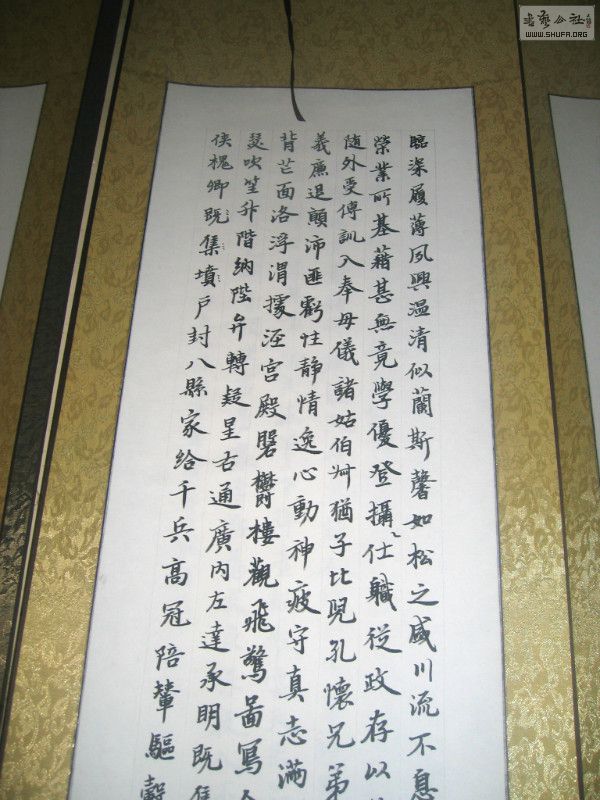 臨深履薄夙興温清似蘭斯馨如松之盛川流不息
榮業所基藉甚無竟學優登攝仕職從政存以
随外受傅訓入奉母儀諸姑伯叔猶子比兒孔懷兄弟
義廉退顛沛匪虧性静情逸心動神疲守真志滿
背芒面洛浮渭據涇宮殿磐鬱樓觀飛驚啚寫
瑟吹笙升階納陛弁轉疑星右通廣内左達承明既集
俠槐卿既集墳戶封八縣家給千兵高冠陪輦驅轂
书艺公社
WWW.SHUFA.ORG